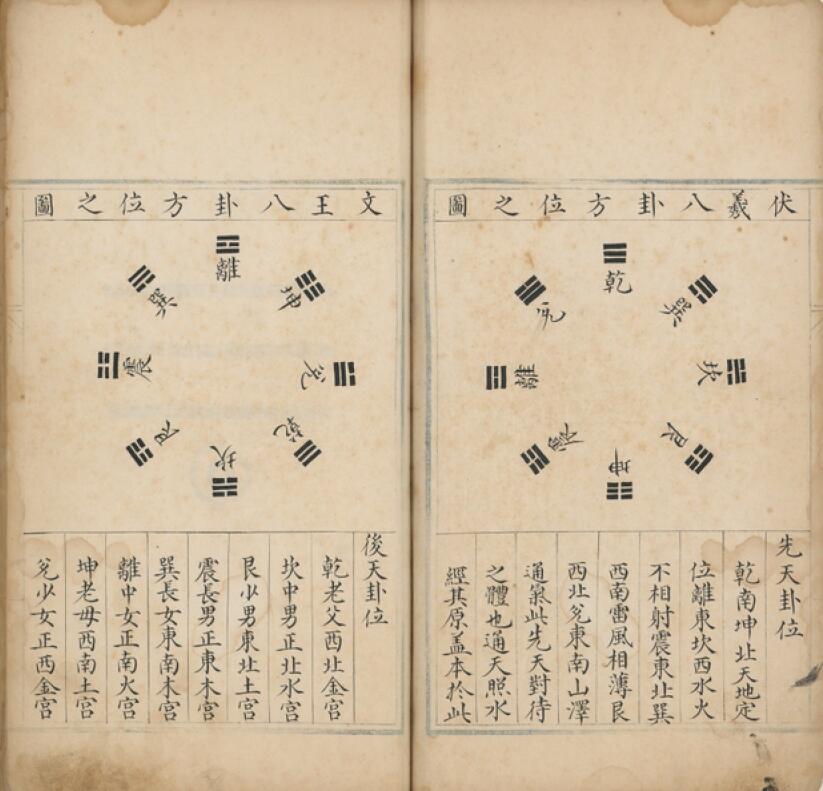 伏羲八卦方位之圖
乾
兌
巽
離
坎
震
艮
坤
先天卦位
乾南坤北天地定
位離東坎西水火
不相射震東北巽
西南雷風相薄艮
西北兌東南山澤
通氣此先天對待
之體也通天照水
經其原蓋本於此
文王八卦方位之圖
離
巽
坤
震
兌
艮
乾
坎
後天卦位
乾老父西北金宮
坎中男正北水宮
艮少男東北土宮
震長男正東木宮
巽長女東南木宮
離中女正南火宮
坤老母西南土宮
兌少女正西金宮